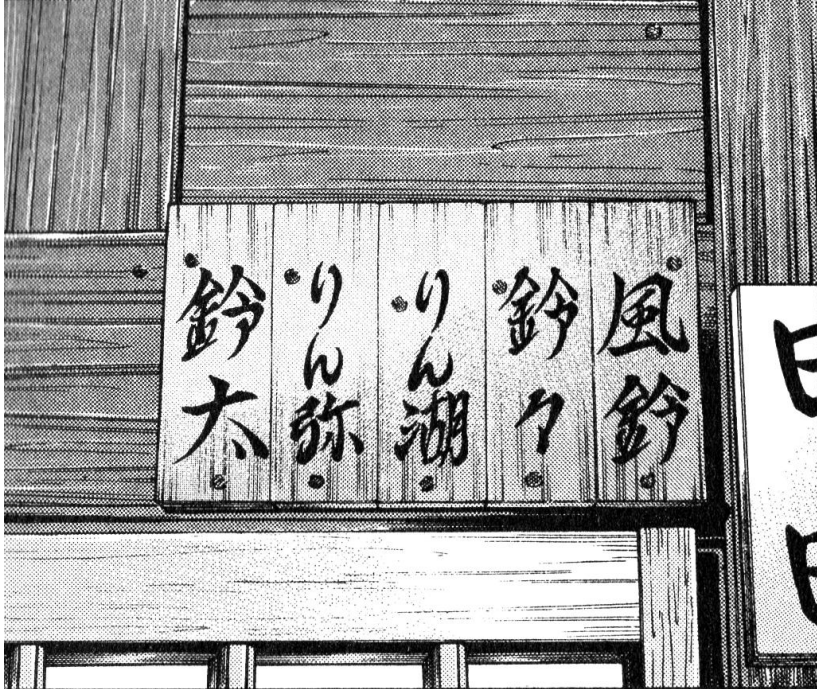 風鈴
鈴々
りん湖
りん弥
鈴太